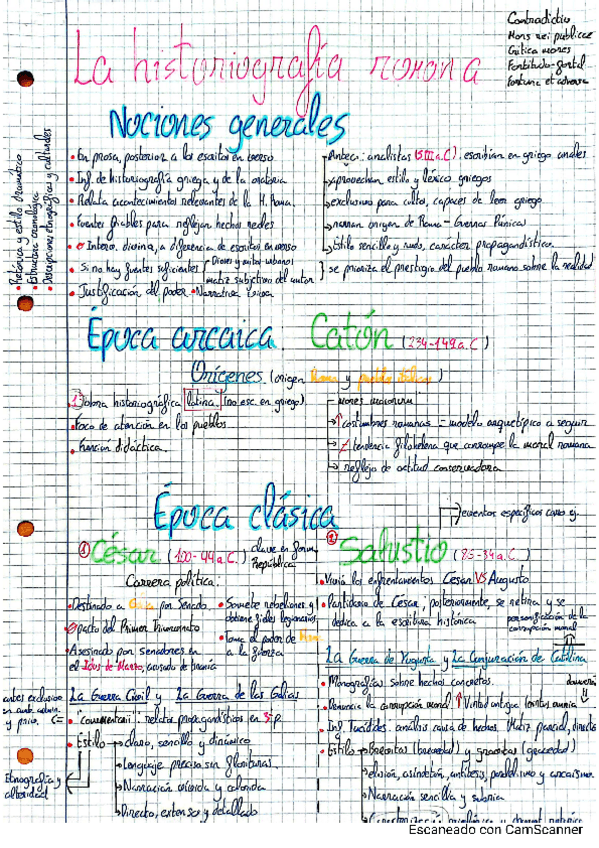 Contradictio
Mons rei publicae
Crítica mores
Fortitudo-gental
fortuna et adversa
La historiografía romana
Nociones generales
Retórica y estilo dramático
Estructura cronológica
Descripciones etnográficas y culturales
• En prosa, posterior a los escritos en verso
• Inf. de historiografía griega y de la oratoria
• Relata acontecimientos relevantes de la H. Roma
• Fuentes fiables para reflejar hechos reales
• Interv. divina, a diferencia de escritos en verso
• Si no hay fuentes suficientes
Dioses y mitos urbanos
matiz subjetivo del autor
} se prioriza el prestigio del pueblo romano sobre la realidad
• Justificación del poder • Narrativa
Antec: analistas (SIII a.C): escribían en griego anales
aprovechan estilo y léxico griegos
exclusivo para culto, capaces de leer griego
narran origen de Roma - Guerras Púnicas
Estilo sencillo y rudo, carácter propagandístico
Época arcaica. Catón (234-149 a.C)
Orígenes (origen Roma y pueblos itálicos)
1ª obra historiográfica latina (no esc. en griego)
• Foco de atención en los pueblos
• Función didáctica
mores maiorum
↑ costumbres romanas = modelo arquetípico a seguir
≠ tendencia filohelena que corrompe la moral romana
→ reflejo de actitud conservadora
Época clásica
eventos específicos como ej.
① César (100-44 a.C.)
clave en forma República
Carrera política:
• Destinado a Galia por Senado
• pacto del Primer Triunvirato
• Asesinado por senadores en el Idus de Marzo, acusado de tiranía
• Somete rebeliones y obtiene fieles legionarios
• Toma el poder de Roma a la fuerza
La Guerra Civil y La Guerra de las Galias
antes exclusivo
y priv.
• Commentarii: relato propagandístico en 3ª p.
• Estilo → claro, sencillo y dinámico
→ Lenguaje preciso sin florituras
→ Narración vívida y colorida
→ Directo, extenso y detallado
Etnografía y alteridad
② Salustio (85-34 a.C.)
• Vivía los enfrentamientos César VS Augusto
• Partidario de César; posteriormente, se retira y se dedica a la escritura histórica
personificación de la corrupción moral
La Guerra de Yugurta y La Conjuración de Catilina
• Monografías sobre hechos concretos
• Denuncia la corrupción moral ↑ Virtud antigua
• Inf Tucídides: análisis causa de hechos (Matiz parcial, directo
• Estilo → Brevitas (brevedad) y gravitas (gravedad)
→ elisión, asíndeton, antítesis, paralelismo y arcaísmo
→ Narración sencilla y sobria
Escaneado con CamScanner